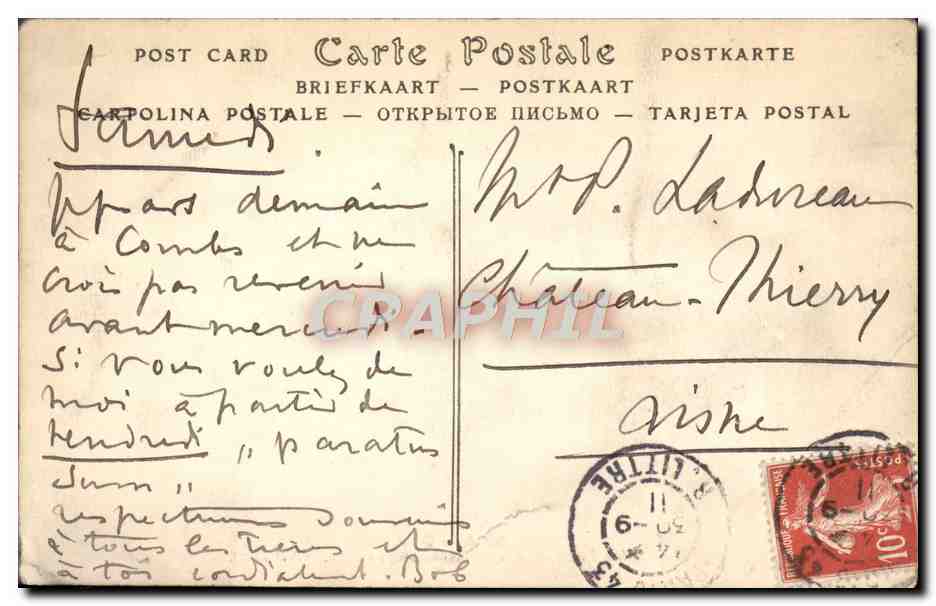 POST CARD Carte Postale POSTKARTE
BRIEFKAART — POSTKAART
CARTOLINA POSTALE — ОТКРЫТОЕ ПИСЬМО — TARJETA POSTAL
Samedi
pars demain
à Combs et ne
crois pas revenir
avant mercredi -
Si vous voulez de
moi à partir de
vendredi „ paratus
sum „
respectueux
à tous les tiens et
à toi cordialement. Bob
Mr P. Ladureau
Château-Thierry
Aisne
R. LITTRE
11
30-9
43
R. LITTRE
11
POSTES
10c
CPAPHIL